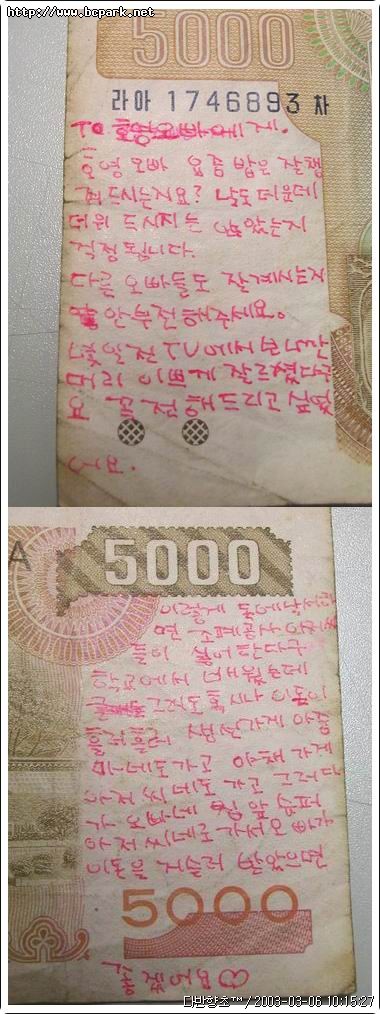 http://www.bcpark.net
5000
라아 1746893 차
To 호영오빠에게.
호영오빠 요즘 밥은 잘챙
겨드시는지요? 날도 더운데
더위 드시지는 않았는지
걱정됩니다.
다른 오빠들도 잘계시는지
안부전해주세요.
몇일전 TV에서 보니깐
머리 이쁘게 잘르셨다구
요 꼭 전해드리고 싶었
어요.
A
5000
이렇게 돈에낙서하
면 조폐공사 아저씨
들이 싫어한다구
학교에서 배웠는데
그래도 혹시나 이돈이
흘러흘러 생선가게 아줌
마네도가고 야채 가게
아저씨네도 가고 그러다
가 오빠네 집앞 슈퍼
아저씨네로가서 오빠가
이돈을 거슬러 받았으면
5000
좋겠어요
다빈향초™ / 2003-03-06 10:15:27